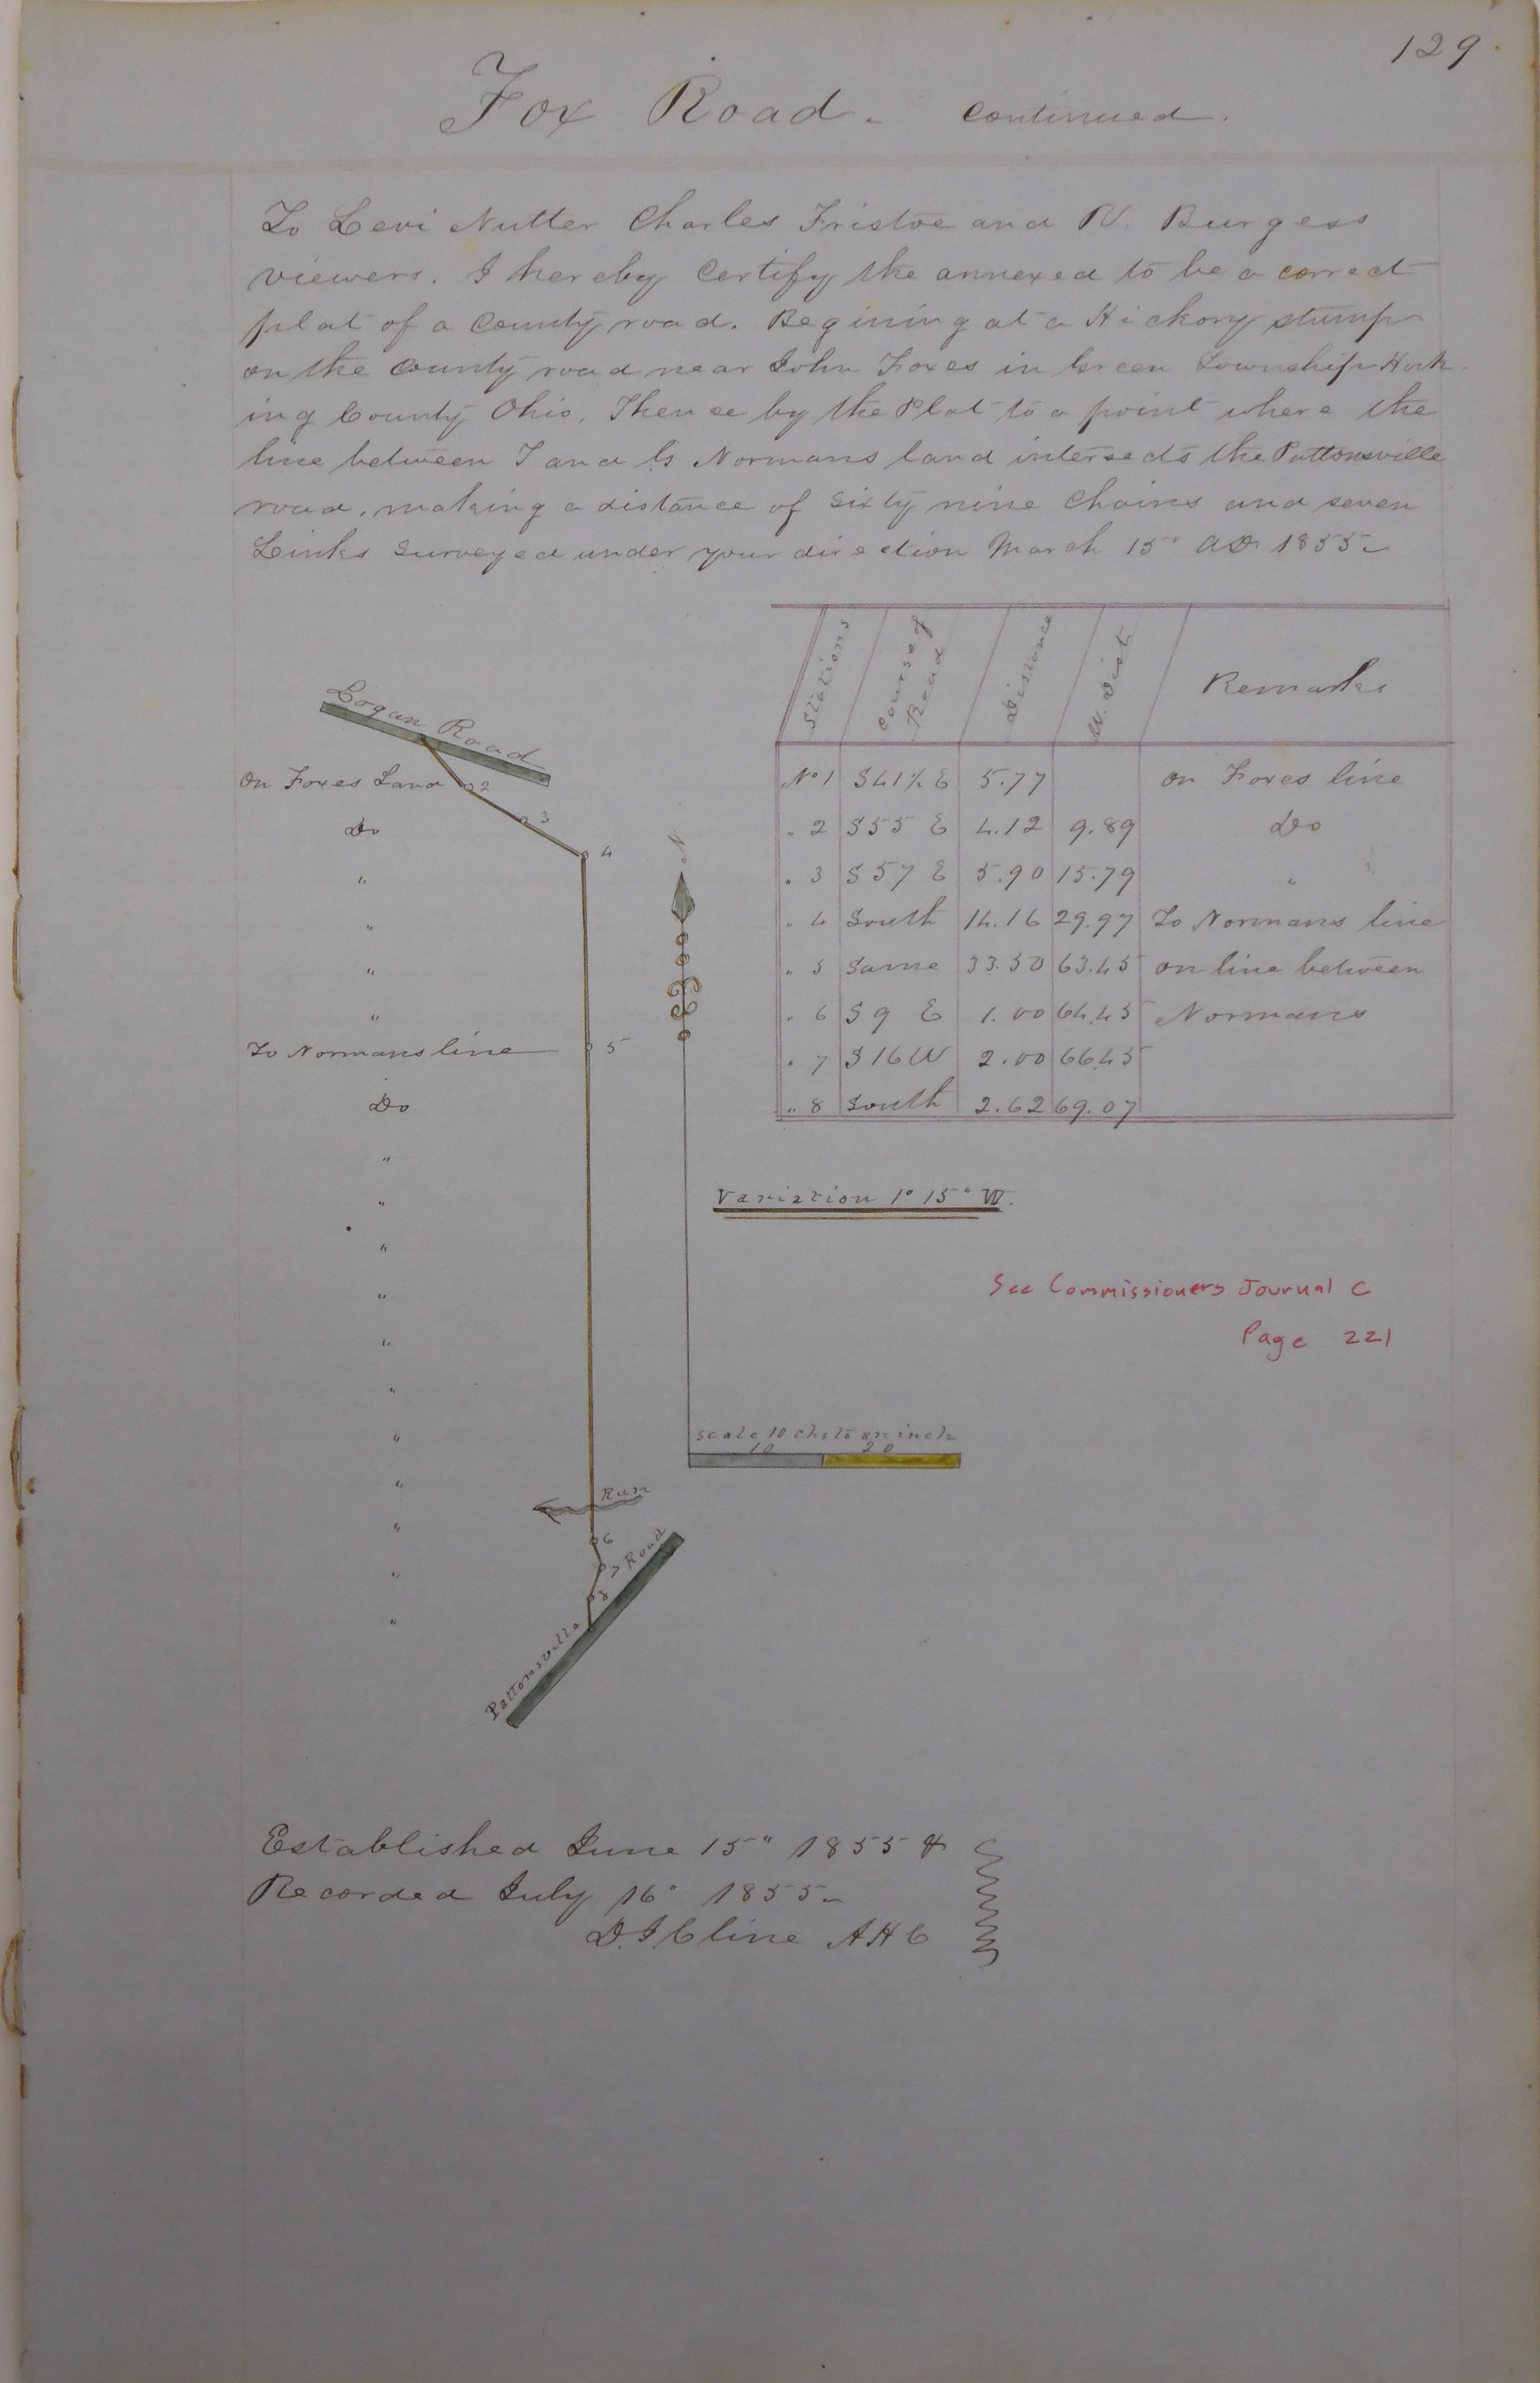 129
Fox Road. Continued.
To Levi Nutter Charles Fristoe and W. Burgess
viewers. I hereby Certify the annexed to be a correct
plat of a County road. Begining at a Hickory stump
on the County road near John Foxes in Green Township Hock-
ing County Ohio. Thence by the Plat to a point where the
line between I and G Normans land interseds the Pattonsville
road, making a distance of Sixty nine Chains and seven
Links Surveyed under your direction March 15" AD 1855
Stations Course of Road Distance W. Dist Remarks
No 1 S41½ E 5.77 on Foxes line
" 2 S55 E 4.12 9.89 Do
" 3 S57 E 5.90 15.79 "
" 4 South 14.16 29.97 To Normans line
" 5 Same 33.50 63.45 on line between
" 6 S9 E 1.00 64.45 Normans
" 7 S16W 2.00 66.45
" 8 South 2.62 69.07
Logan Road
On Foxes Land 2
Do 3
" 4
"
"
"
N
To Normans line 5
Do
"
"
"
"
"
"
"
"
"
"
"
Variation 1° 15" W.
See Commissioners Journal C
Page 221
scale 10 chs to an inch
10 20
Run
6
7
8
Pattonsville Road
Established June 15" 1855 &
Recorded July 16" 1855
D. I Cline A H C